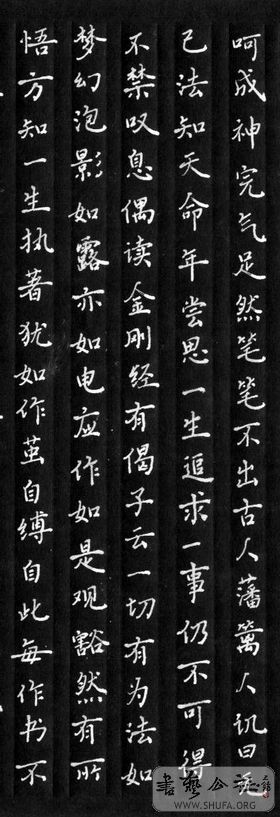 呵成神完气足然笔笔不出古人藩篱人讥曰无
己法知天命年尝思一生追求一事仍不可得
不禁叹息偶读金刚经有偈子云一切有为法如
梦幻泡影如露亦如电应作如是观豁然有所
悟方知一生执著犹如作茧自缚自此每作书不
書藝公社
WWW.SHUFA.ORG